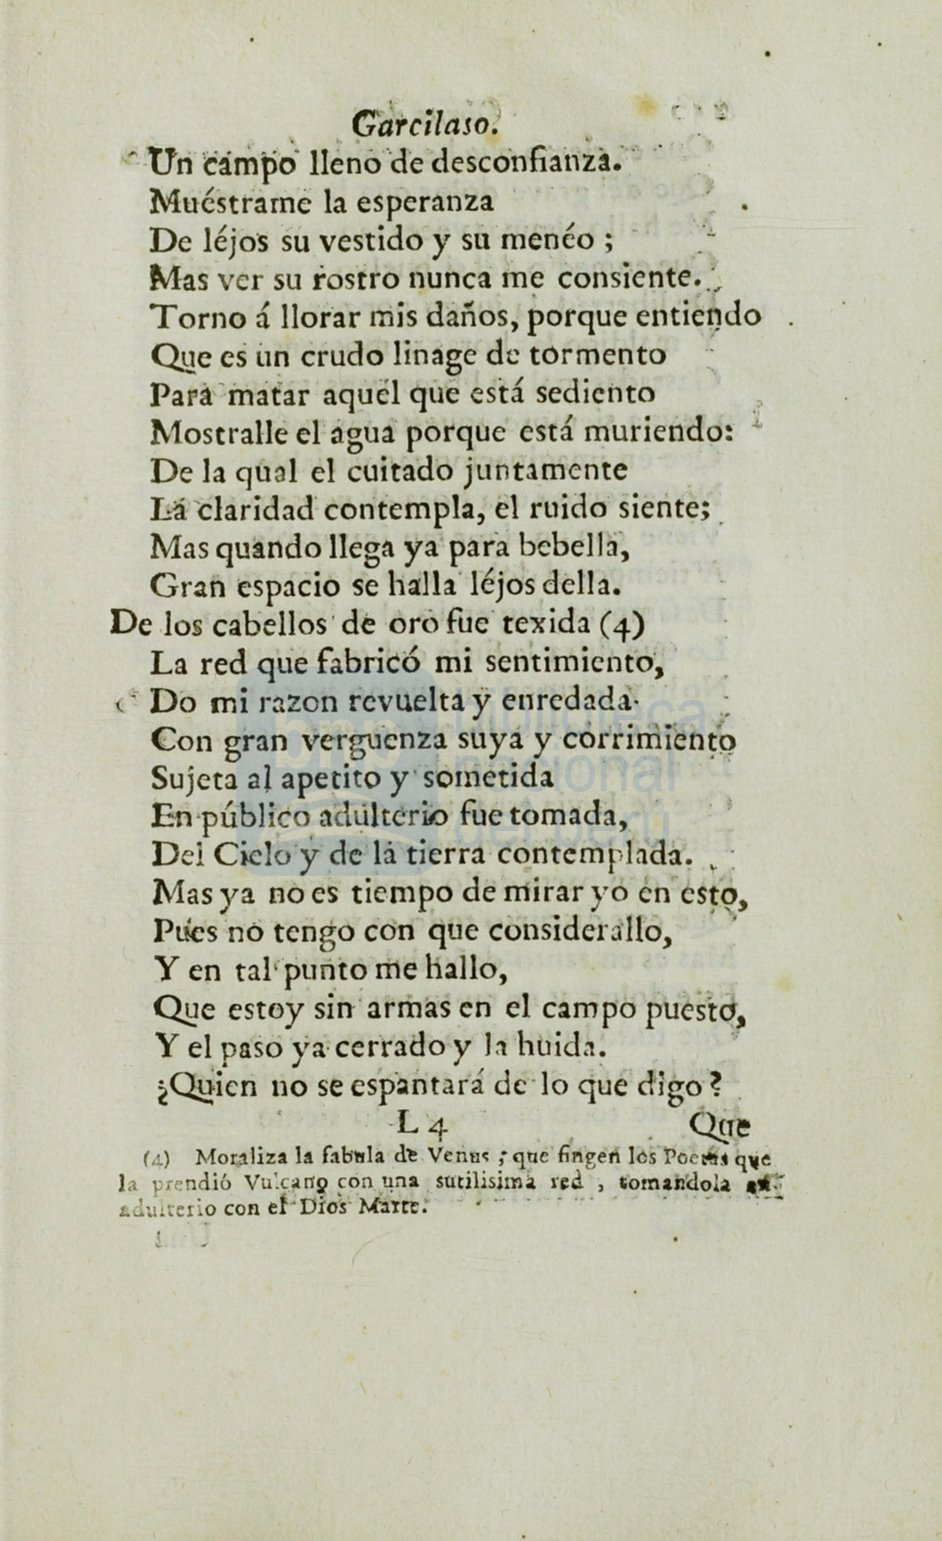 Garcilaso.
Un campo lleno de desconfianza.
Muéstrame la esperanza
De léjos su vestido y su menéo ;
Mas ver su rostro nunca me consiente.
Torno á llorar mis daños, porque entiendo
Que es un crudo linage de tormento
Para matar aquel que está sediento
Mostralle el agua porque está muriendo:
De la qual el cuitado juntamente
La claridad contempla, el ruido siente;
Mas quando llega ya para bebella,
Gran espacio se halla léjos della.
De los cabellos de oro fue texida (4)
La red que fabricó mi sentimiento,
Do mi razon revuelta y enredada
Con gran verguenza suya y corrimiento
Sujeta al apetito y sometida
En público adulterio fue tomada,
Del Cielo y de la tierra contemplada.
Mas ya no es tiempo de mirar yo en esto,
Pues no tengo con que considerallo,
Y en tal punto me hallo,
Que estoy sin armas en el campo puesto,
Y el paso ya cerrado y la huida.
¿Quien no se espantará de lo que digo?
L 4 Que
(4) Moraliza la fabula de Venus ; que fingen los Poetas que
la prendió Vulcano con una sutilisima red , tomandola
adulterio con el Dios Marte.